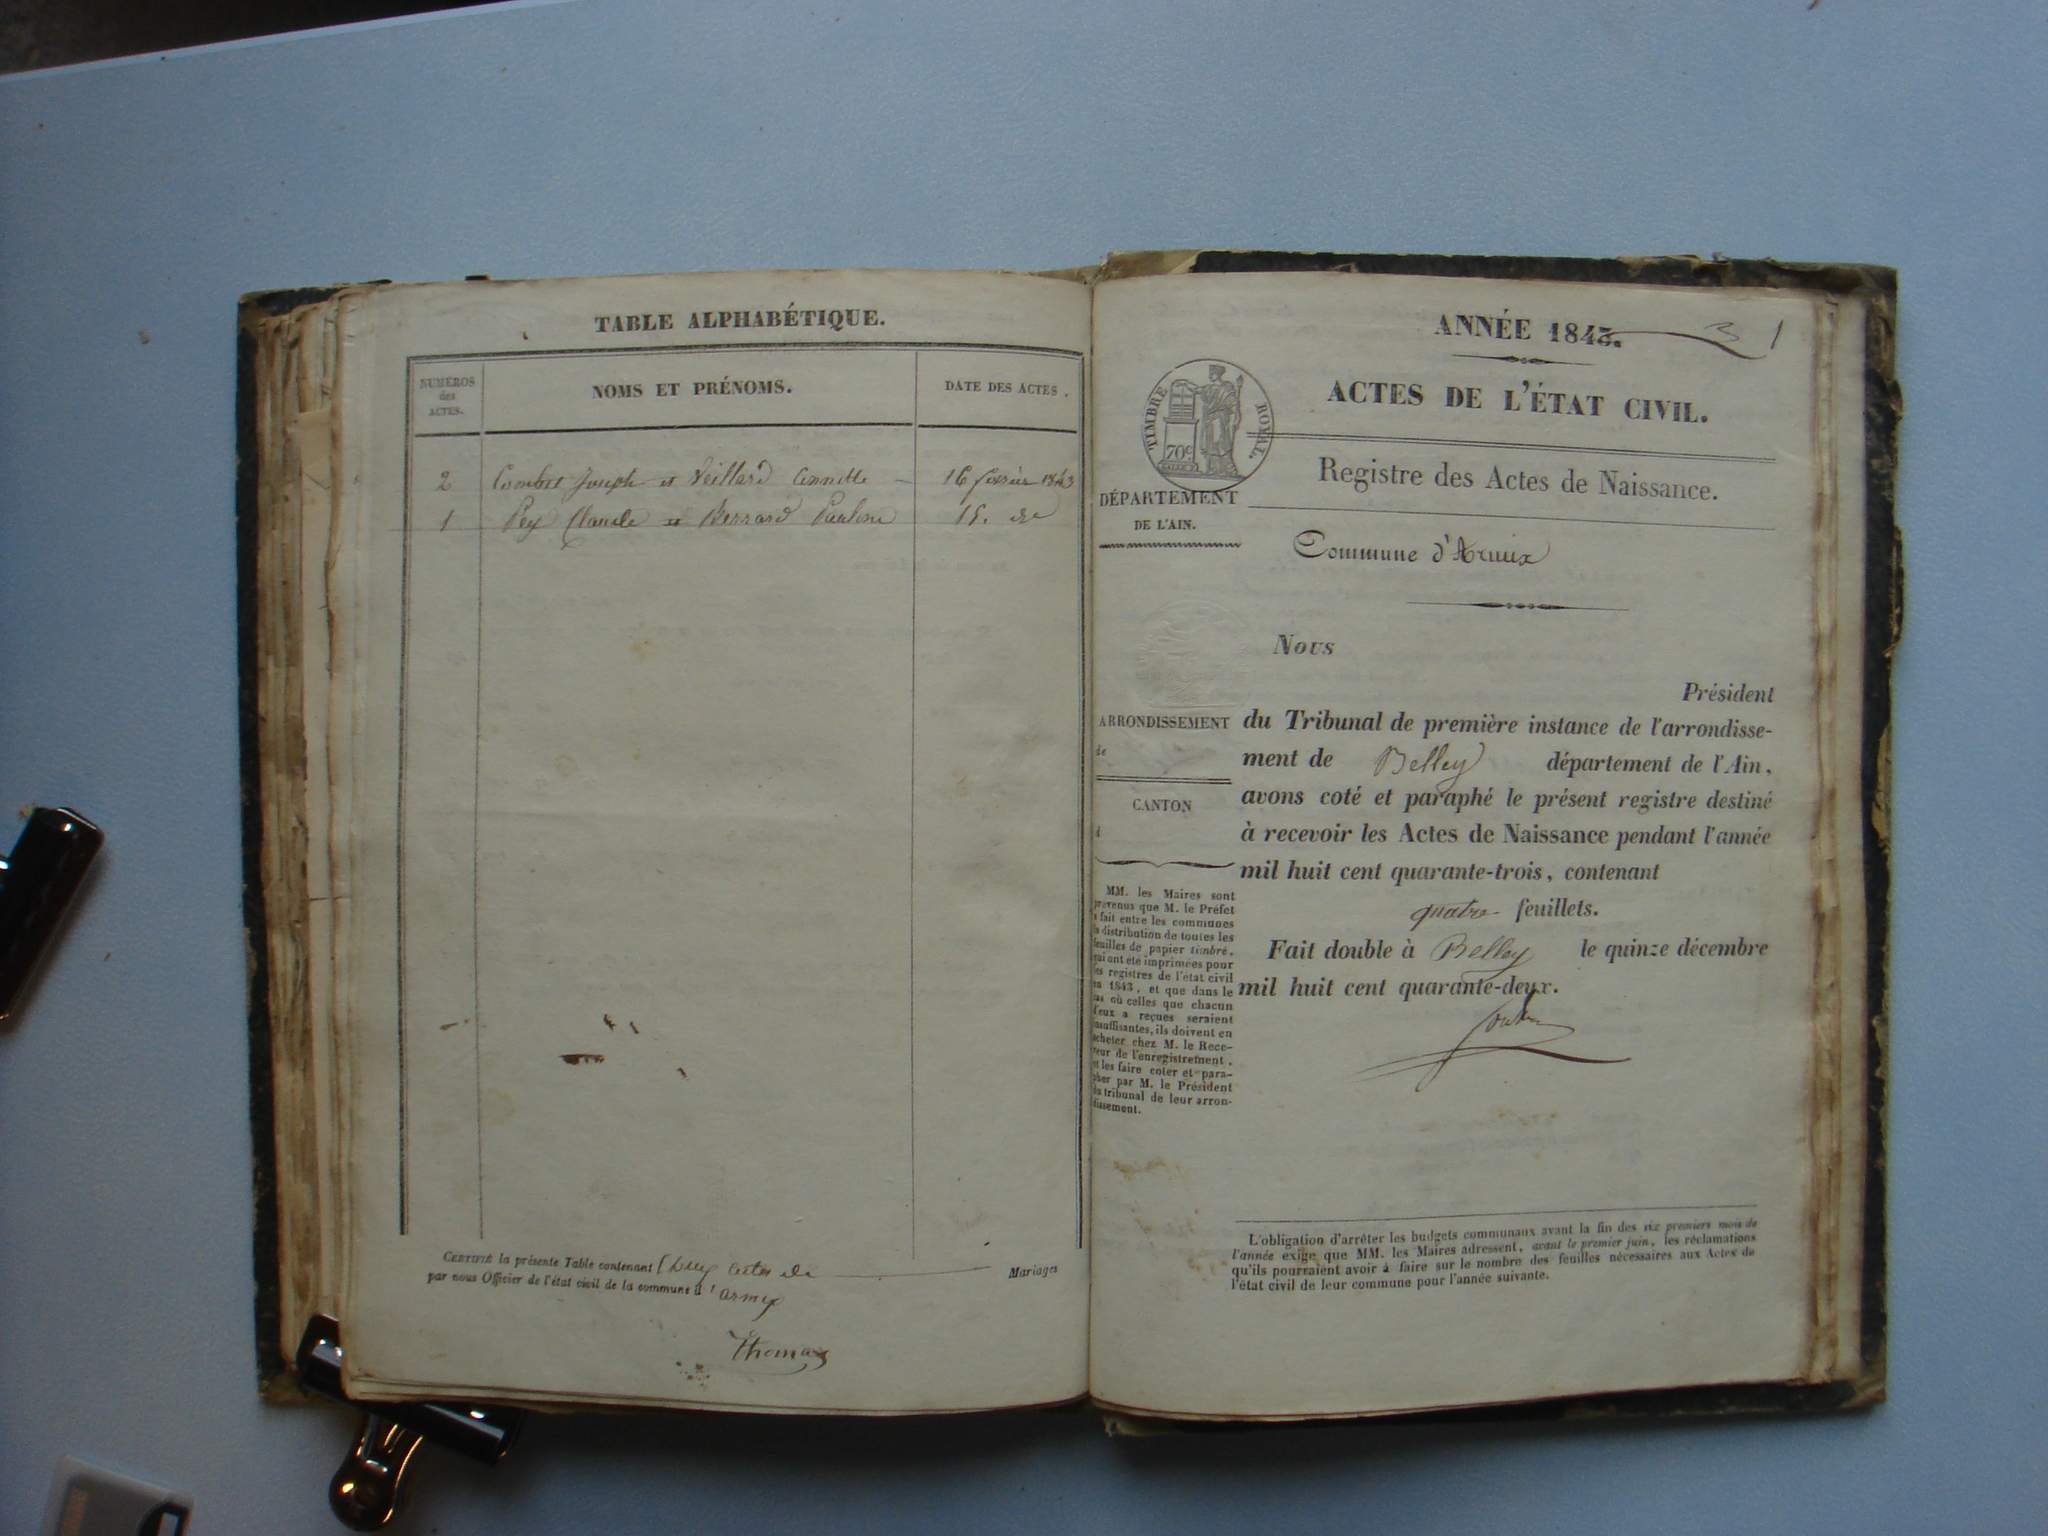 TABLE ALPHABÉTIQUE.
NUMÉROS des ACTES.
NOMS ET PRÉNOMS.
DATE DES ACTES.
2 Combet Joseph et Veillard Annette 16 février 1843
1 Pey Claude et Bernard Pauline 15. do
CERTIFIÉ la présente Table contenant Deux actes de Mariages
par nous Officier de l'état civil de la commune d'armix
Thomas
ANNÉE 1843. 3 1
ACTES DE L'ÉTAT CIVIL.
TIMBRE ROYAL.
70c
Registre des Actes de Naissance.
DÉPARTEMENT
DE L'AIN.
Commune d'Armix
Nous
Président
ARRONDISSEMENT
de
CANTON
d
du Tribunal de première instance de l'arrondisse-
ment de Belley département de l'Ain,
avons coté et paraphé le présent registre destiné
à recevoir les Actes de Naissance pendant l'année
mil huit cent quarante-trois, contenant
quatre feuillets.
Fait double à Belley le quinze décembre
mil huit cent quarante-deux.
MM. les Maires sont
prévenus que M. le Préfet
a fait entre les communes
la distribution de toutes les
feuilles de papier timbré,
qui ont été imprimées pour
les registres de l'état civil
en 1843, et que dans le
cas où celles que chacun
d'eux a reçues seraient
insuffisantes, ils doivent en
acheter chez M. le Rece-
veur de l'enregistrement,
et les faire coter et para-
pher par M. le Président
du tribunal de leur arron-
dissement.
L'obligation d'arrêter les budgets communaux avant la fin des six premiers mois de
l'année exige que MM. les Maires adressent, avant le premier juin, les réclamations
qu'ils pourraient avoir à faire sur le nombre des feuilles nécessaires aux Actes de
l'état civil de leur commune pour l'année suivante.